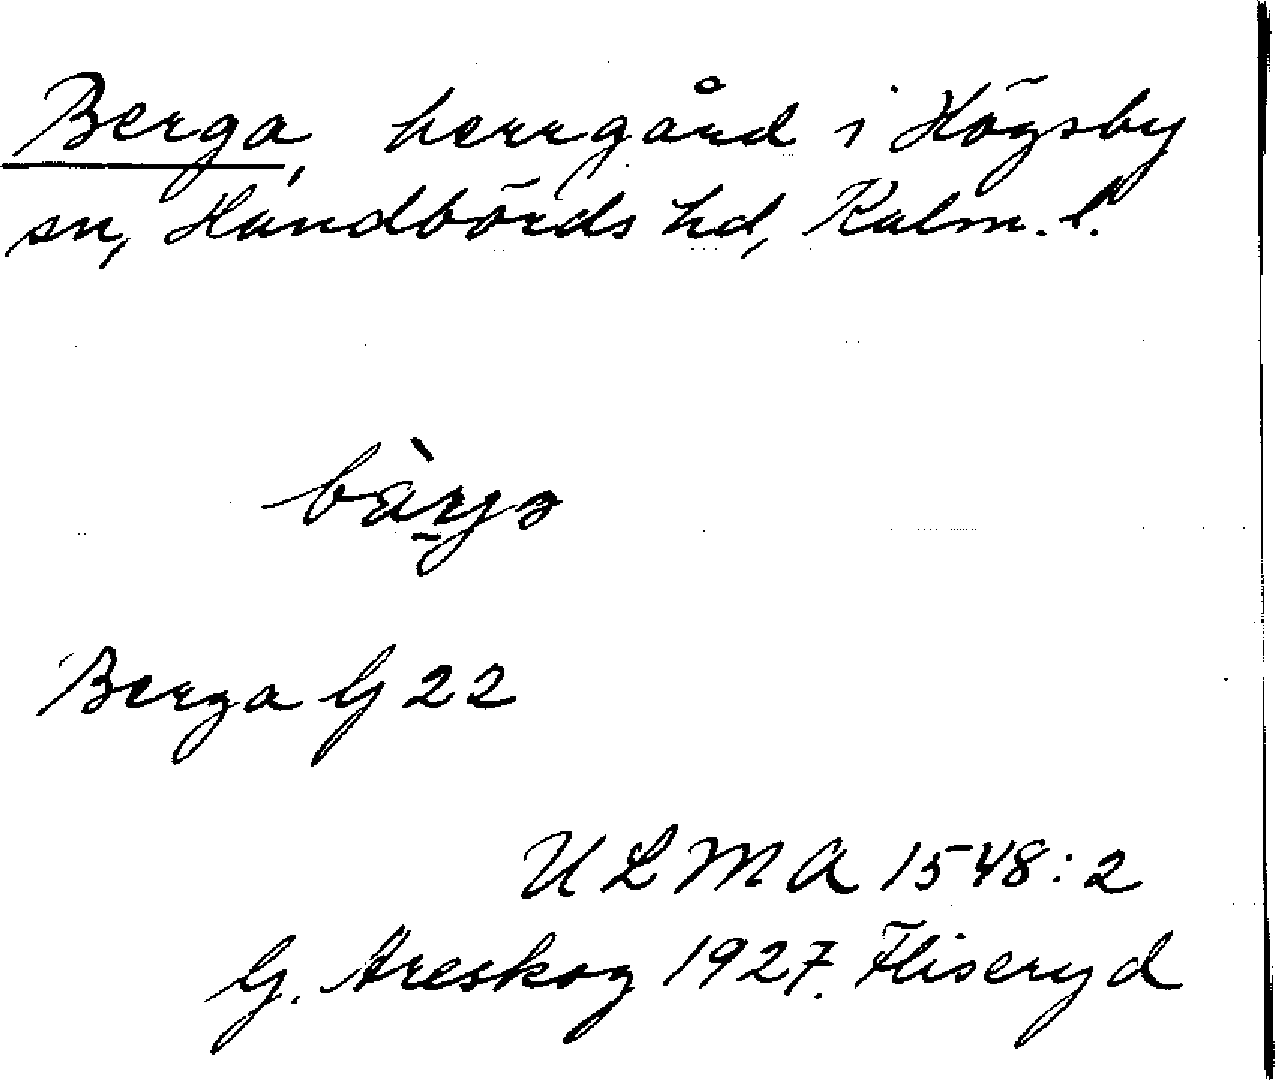 Berga, herrgård i Högsby
sn, Handbörds hd, Kalm. l.
bàrjɘ
Berga G 22
ULMA 1548:2
G. Areskog 1927. Fliseryd